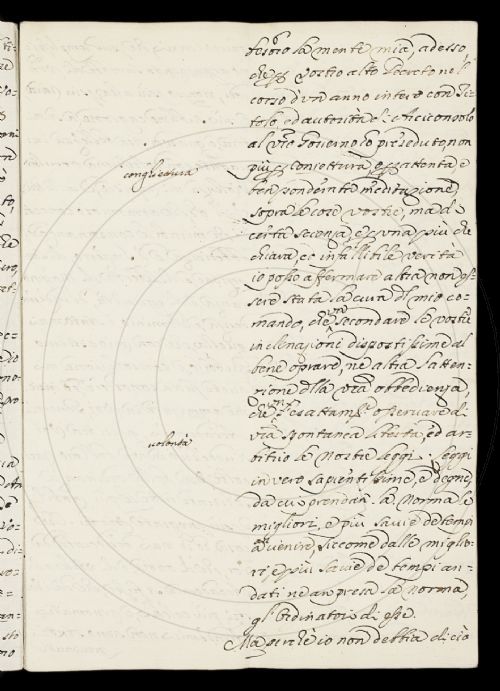 tesoro la mente mia, adesso,
che p vostro alto Decreto nel
corso d'un anno intero con Ti-
tolo, ed autorità
al vro Governo ho preseduto, non
più p conjettura, e
conghiettura
meditazione
sopra le cose vostre, ma di
certa scienza, e p una più che
chiara, ed infallibile verità
io posso affermare altra non es-
sere stata la cura del mio co-
mando, che secondare le vostre
inclinazioni dispostissime al
bene oprare, ne altra l'atten-
zione della vra obbedienza,
che osservare di
volontà
vra spontanea libertà, ed ar-
bitrio le nostre leggi. Leggi
in vero sapientissime, e degne,
da cui prendan la norma le
migliori, e più savie de tempi
avenire, siccome dalle miglio-
ri, e più savie de tempi an-
dati ne an presa la norma,
gl'Ordinatori di esse.
Ma perchè io non debbia di ciò